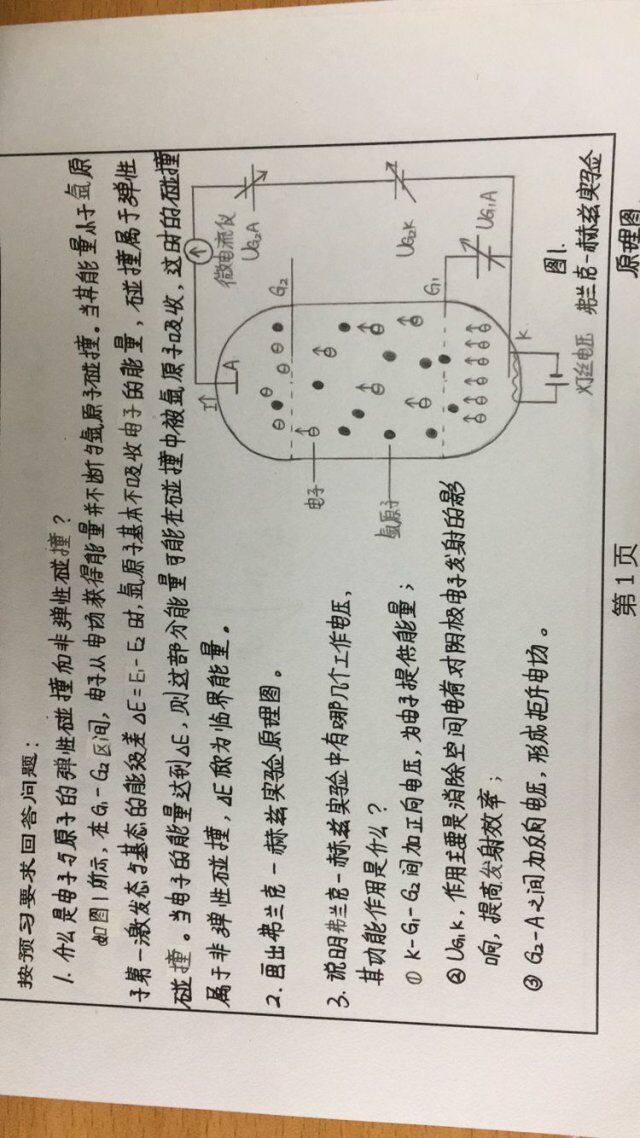 按预习要求回答问题：
1. 什么是电子与原子的弹性碰撞和非弹性碰撞？
如图1所示，在G₁-G₂区间，电子从电场获得能量并不断与氩原子碰撞。当其能量小于氩原
子第一激发态与基态的能级差△E=E₁-E₂时，氩原子基本不吸收电子的能量，碰撞属于弹性
碰撞。当电子的能量达到△E，则这部分能量可能在碰撞中被氩原子吸收，这时的碰撞
属于非弹性碰撞，△E称为临界能量。
2. 画出弗兰克-赫兹实验原理图。
3. 说明弗兰克-赫兹实验中有哪几个工作电压，
其功能作用是什么？
① K-G₁-G₂间加正向电压，为电子提供能量；
② UG₁K，作用主要是消除空间电荷对阴极电子发射的影
响，提高发射效率；
③ G₂-A之间加反向电压，形成拒斥电场。
I
A
微电流仪
UG₂A
G₂
电子
氩原子
UG₂K
G₁
UG₁A
K
灯丝电压
图1.
弗兰克-赫兹实验
原理图
第1页